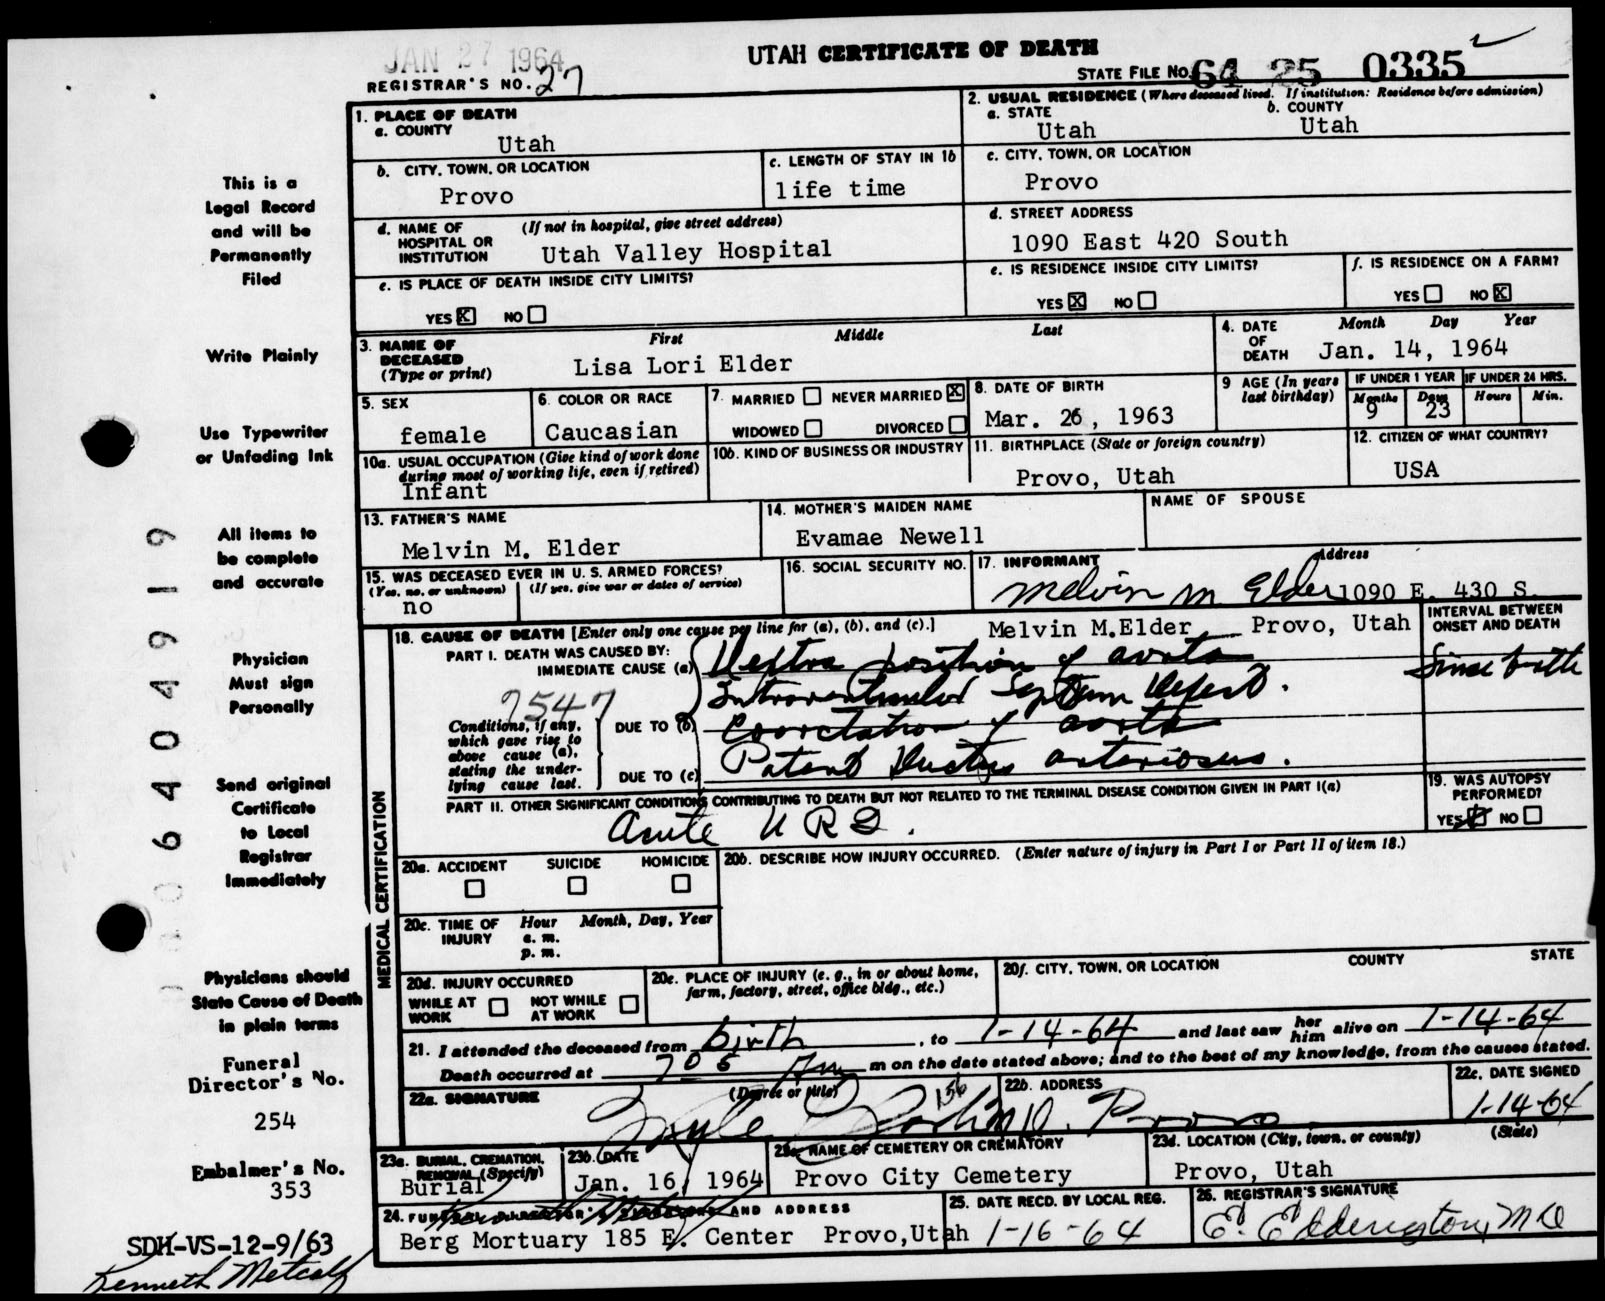 JAN 27 1964
UTAH CERTIFICATE OF DEATH
REGISTRAR'S NO. 27
STATE FILE NO. 64 25 0335
1. PLACE OF DEATH
a. COUNTY
Utah
2. USUAL RESIDENCE (Where deceased lived. If institution: Residence before admission)
a. STATE b. COUNTY
Utah Utah
b. CITY, TOWN, OR LOCATION
Provo
c. LENGTH OF STAY IN 1b
life time
c. CITY, TOWN, OR LOCATION
Provo
d. NAME OF HOSPITAL OR INSTITUTION (If not in hospital, give street address)
Utah Valley Hospital
d. STREET ADDRESS
1090 East 420 South
e. IS PLACE OF DEATH INSIDE CITY LIMITS?
YES X NO
e. IS RESIDENCE INSIDE CITY LIMITS?
YES X NO
f. IS RESIDENCE ON A FARM?
YES NO X
3. NAME OF DECEASED (Type or print)
First Middle Last
Lisa Lori Elder
4. DATE OF DEATH Month Day Year
Jan. 14, 1964
5. SEX
female
6. COLOR OR RACE
Caucasian
7. MARRIED NEVER MARRIED X
WIDOWED DIVORCED
8. DATE OF BIRTH
Mar. 26, 1963
9 AGE (In years last birthday)
IF UNDER 1 YEAR IF UNDER 24 HRS.
Months Days Hours Min.
9 23
10a. USUAL OCCUPATION (Give kind of work done during most of working life, even if retired)
Infant
10b. KIND OF BUSINESS OR INDUSTRY
11. BIRTHPLACE (State or foreign country)
Provo, Utah
12. CITIZEN OF WHAT COUNTRY?
USA
13. FATHER'S NAME
Melvin M. Elder
14. MOTHER'S MAIDEN NAME
Evamae Newell
NAME OF SPOUSE
15. WAS DECEASED EVER IN U. S. ARMED FORCES?
(Yes, no, or unknown) (If yes, give war or dates of service)
no
16. SOCIAL SECURITY NO.
17. INFORMANT Address
Melvin M Elder 1090 E. 430 S.
Melvin M.Elder Provo, Utah
18. CAUSE OF DEATH [Enter only one cause per line for (a), (b), and (c).]
INTERVAL BETWEEN ONSET AND DEATH
PART I. DEATH WAS CAUSED BY:
IMMEDIATE CAUSE (a) Dextra position of aorta
Since birth
Septum Defect.
7547
Conditions, if any, which gave rise to above cause (a), stating the underlying cause last.
DUE TO (b) Coarctation of aorta
Patent Ductus arteriosus.
DUE TO (c)
PART II. OTHER SIGNIFICANT CONDITIONS CONTRIBUTING TO DEATH BUT NOT RELATED TO THE TERMINAL DISEASE CONDITION GIVEN IN PART I(a)
acute U R I.
19. WAS AUTOPSY PERFORMED?
YES NO
MEDICAL CERTIFICATION
20a. ACCIDENT SUICIDE HOMICIDE
20b. DESCRIBE HOW INJURY OCCURRED. (Enter nature of injury in Part I or Part II of item 18.)
20c. TIME OF INJURY Hour Month, Day, Year
a. m.
p. m.
20d. INJURY OCCURRED
WHILE AT WORK NOT WHILE AT WORK
20e. PLACE OF INJURY (e. g., in or about home, farm, factory, street, office bldg., etc.)
20f. CITY, TOWN, OR LOCATION COUNTY STATE
21. I attended the deceased from birth, to 1-14-64 and last saw her him alive on 1-14-64
Death occurred at 705 Am m on the date stated above; and to the best of my knowledge, from the causes stated.
22a. SIGNATURE (Degree or title)
156
22b. ADDRESS
Provo
22c. DATE SIGNED
1-14-64
23a. BURIAL, CREMATION, REMOVAL (Specify)
Burial
23b. DATE
Jan. 16, 1964
23c. NAME OF CEMETERY OR CREMATORY
Provo City Cemetery
23d. LOCATION (City, town, or county) (State)
Provo, Utah
24. FUNERAL DIRECTOR'S AND ADDRESS
Berg Mortuary 185 E. Center Provo,Utah
25. DATE RECD. BY LOCAL REG.
1-16-64
26. REGISTRAR'S SIGNATURE
This is a
Legal Record
and will be
Permanently
Filed
Write Plainly
Use Typewriter
or Unfading Ink
All items to
be complete
and accurate
Physician
Must sign
Personally
Send original
Certificate
to Local
Registrar
Immediately
Physicians should
State Cause of Death
in plain terms
Funeral
Director's No.
254
Embalmer's No.
353
SDH-VS-12-9/63
Kenneth Metcalf